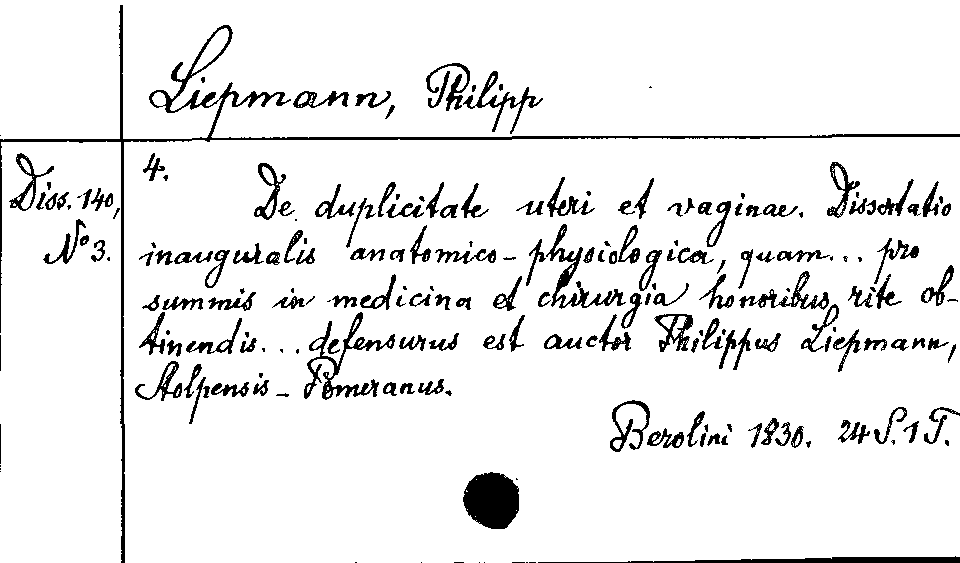 Liepmann, Philipp
Diss. 140,
No 3.
4.
De duplicitate uteri et vaginae. Dissertatio
inauguralis anatomico-physiologica, quam... pro
summis in medicina et chirurgia honoribus rite ob-
tinendis... defensurus est auctor Philippus Liepmann,
Stolpensis-Pomeranus.
Berolini 1830. 24 S. 1 T.